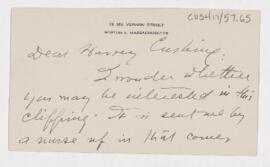 CUS417/57.65
15 MT. VERNON STREET
BOSTON 8, MASSACHUSETTS
Dear Harvey Cushing:
I wonder whether
you may be interested in this
clipping. It is sent me by
a nurse up in that corner